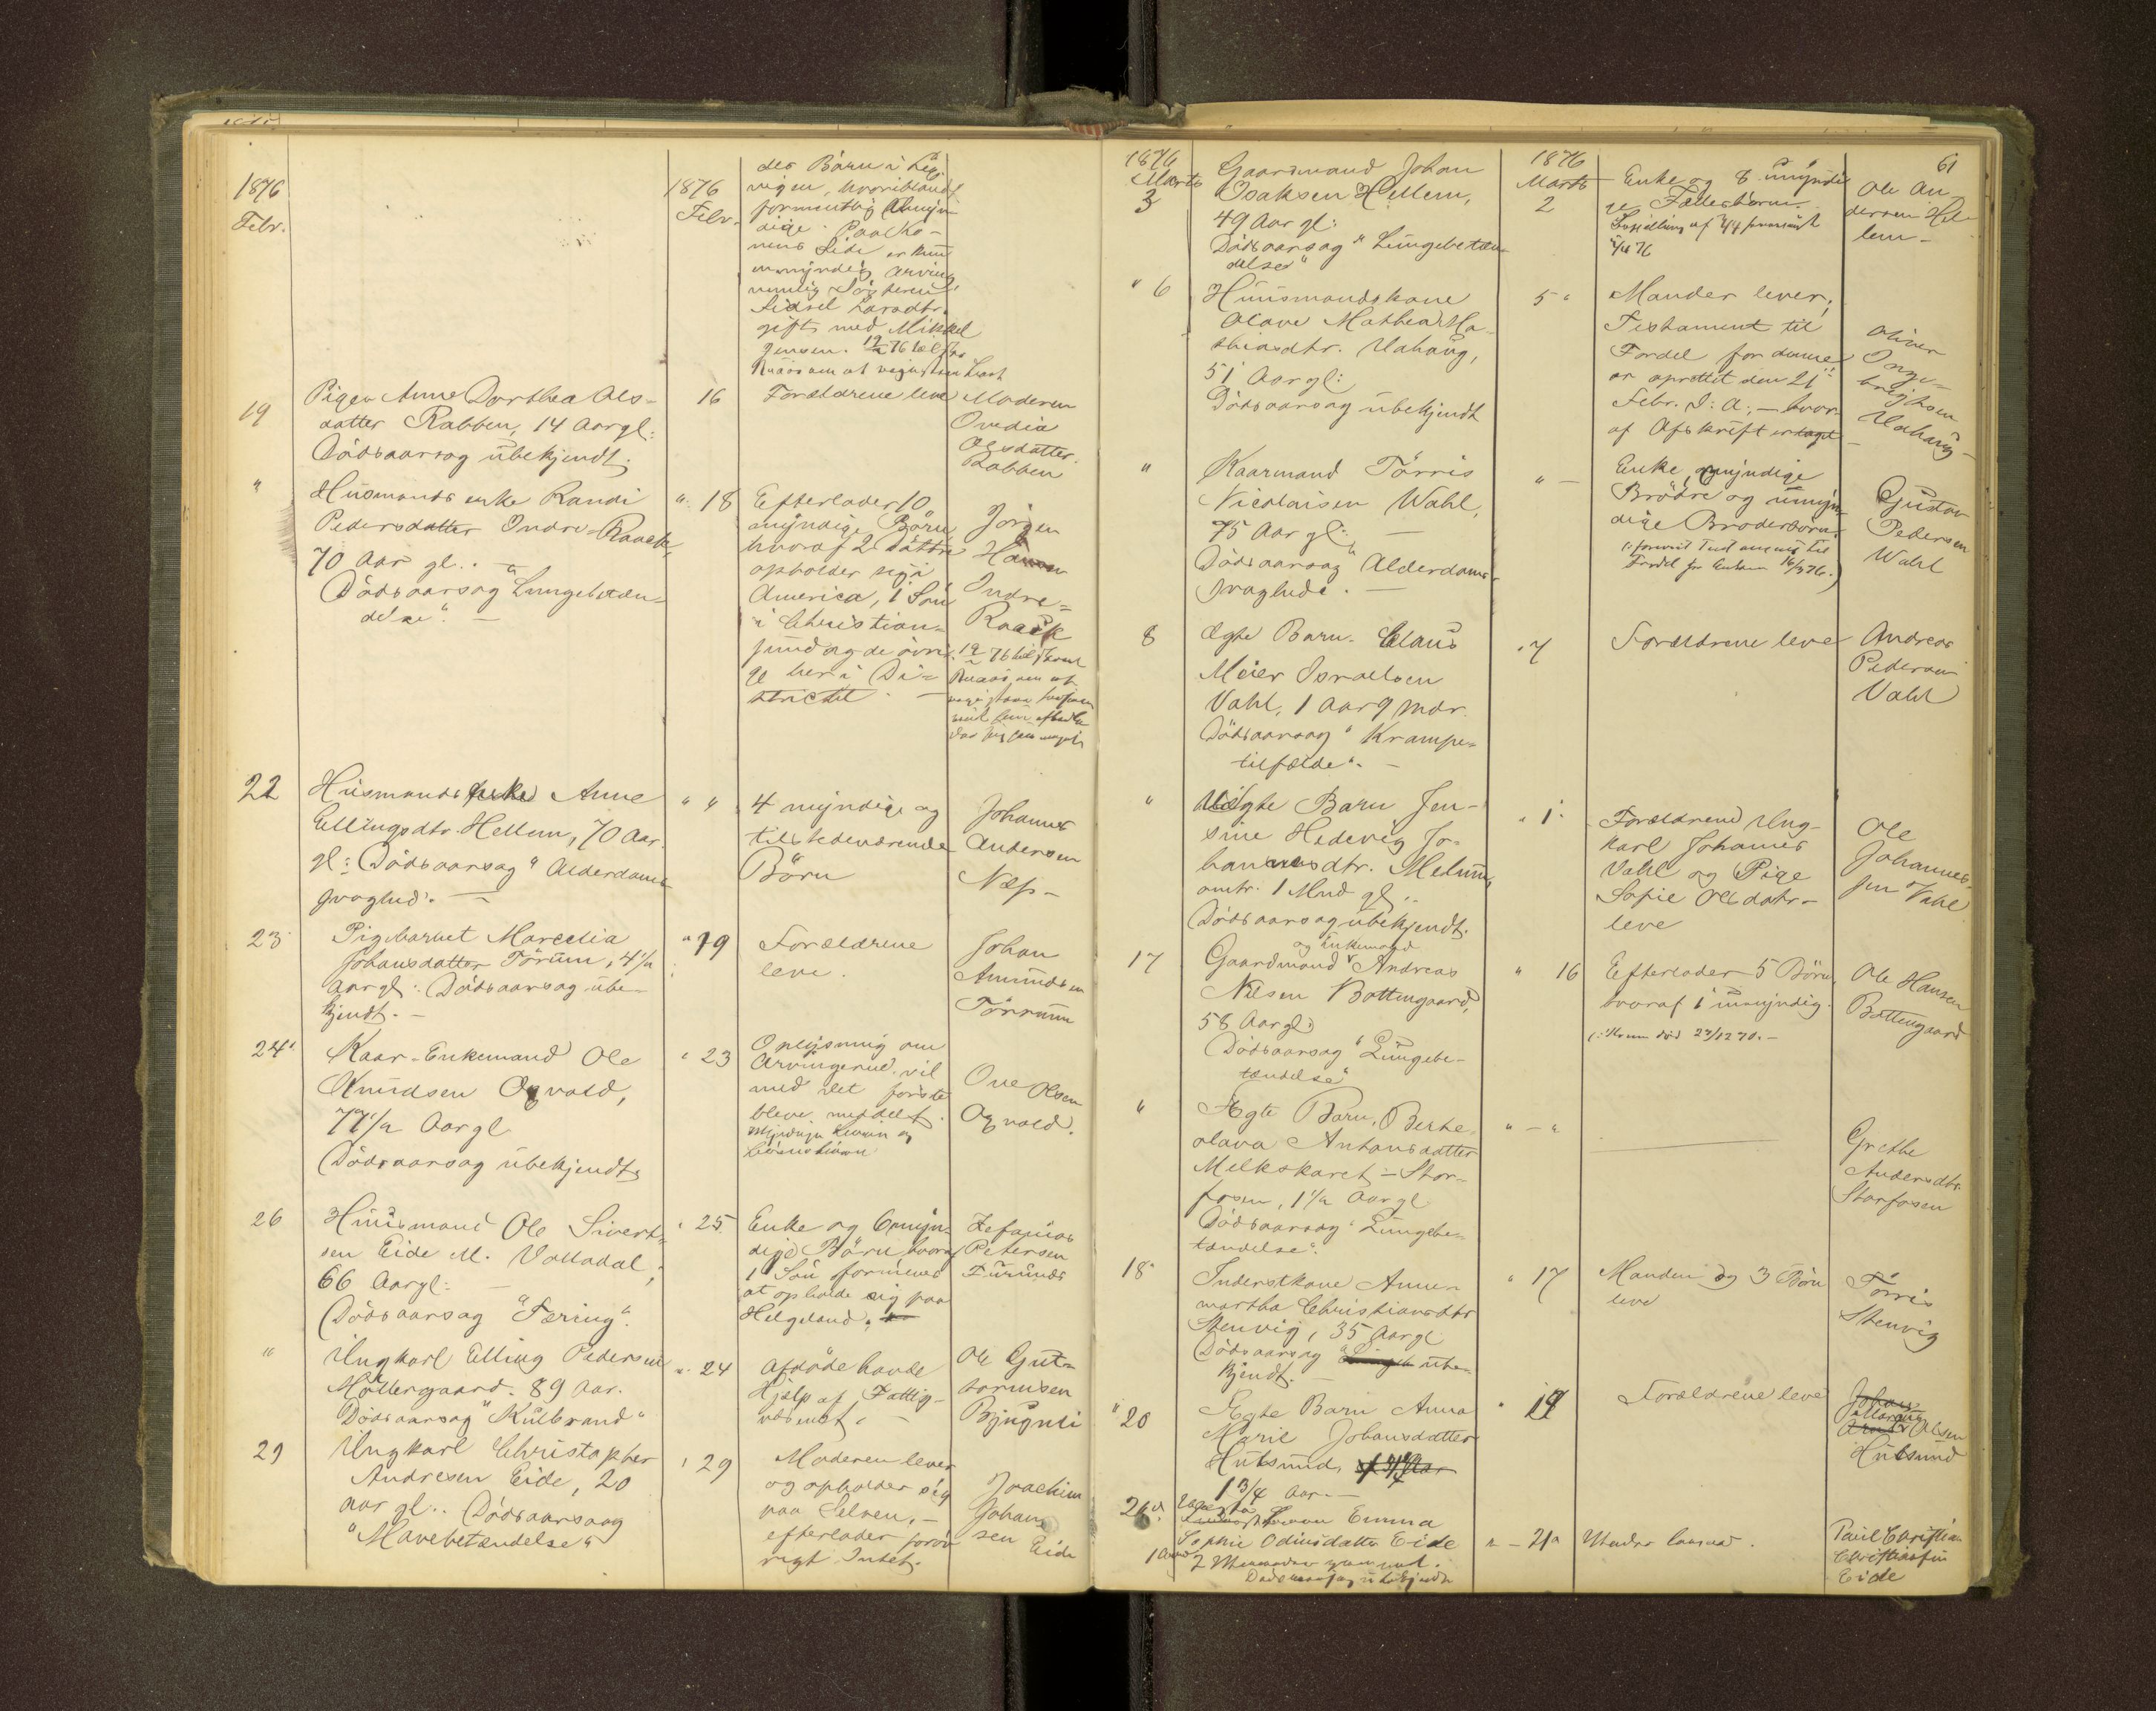 1876
Febr.
1876
Febr.
des Börn i Leg
vigen, hvoriblandt
formentlig Umyn
dige. Paa Ko-
nens Side er kun
en myndig Arving
nemlig Søsteren
Sidsel Larsdtr.
gift med Mikkel
Jensen.
19
Pigen Anne Dorthea Ols-
datter Rabben, 14 Aar gl:
Dödsaarsag ubekjendt.
16
Forældrene leve
Moderen
Ovedia
Olsdatter
Rabben
"
Husmands enke Randi
Pedersdatter Indre-Raack,
70 Aar gl.. -
Dödsaarsag "Lungebetæn-
delse". -
" 18
Efterlader 10
myndige Börn
hvoraf 2 Döttre
opholder sig i
America, 1 Sön
i Christian-
sund og de övri-
ge her i Di-
strictet. -
Jörgen
Hansen
Indre-
Raack
22
Husmands enke Anne
Ellingsdtr. Hellem, 70 Aar.
gl: Dödsaarsag "Alderdoms
svaghed". -
" "
4 myndige og
tilstedeværende
Börn
Johannes
Andersen
Næs-
23
Pigebarnet Marcelia
Johansdatter Törum, 4½
Aar gl: Dödsaarsag ube-
kjendt. -
" 19
Forældrene
leve.
Johan
Amundsen
Törrum
24
Kaar-Enkemand Ole
Knudsen Opvold,
77½ Aar gl
Dödsaarsag ubekjendt
" 23
Oplysning om
Arvingerne vil
med det förste
bleve meddelt.
Ove Olsen
Opvold.
26
Husmand Ole Sivert-
sen Eide M. Valladal,
66 Aar gl: -
Dödsaarsag "Tæring".
" 25
Enke og 6 myn-
dige Börn, hvoraf
1 Sön formenes
at opholde sig paa
Helgeland.
Zefanias
Petersen
Furunes
"
Ungkarl Elling Pedersen
Möllergaard. 89 Aar.
Dödsaarsag "Kulbrand"
" 24
Afdöde havde
Hjelp af Fattig-
væsenet. -
Ole Gut-
tormsen
Bjugnli
29
Ungkarl Christopher
Andresen Eide, 20
Aar gl.. Dödsaarsag
"Mavebetændelse"
" 29
Moderen lever
og opholder sig
paa Selven, -
efterlader forøv
rigt Intet.
Joachim
Johan
sen Eide
61
1876
Marts
3
Gaardmand Johan
Isaksen Hellem,
49 Aar gl:
Dödsaarsag "Lungebetæn-
delse"
1876
Marts
2
Enke og 8 umyndi
ge Fællesbörn.
Ole An
dersen Hel-
lem-
" 6
Huusmandskone
Olave Mathea Ma-
thiasdtr. Uahaug,
51 Aar gl:
Dödsaarsag ubekjendt
5 "
Manden lever,
Testament til
Fordel for denne
er oprettet den 21
Febr. d: A:, - hvor-
af Afskrift er taget -
Oliver
Inge-
brigtsen
Uahaug-
"
Kaarmand Törris
Nicolaisen Wahl,
75 Aar gl: -
Dödsaarsag "Alderdoms-
svaghed". -
" -
Enke, myndige
Brödre og umyn-
dige Broderbörn.
Gustav
Pedersen
Wahl
8
Ægte Barn Claus
Meier Israelsen
Vahl, 1 Aar 9 Mdr.
Dödsaarsag "Krampe-
tilfælde". -
" 7
Forældrene leve
Andreas
Pedersen
Vahl
"
Uægte Barn Jen-
sine Hedevig Jo-
hannesdtr. Melum,
omtr. 1 Mnd gl..
Dödsaarsag ubekjendt.
" 1
Forældrene Ung-
karl Johannes
Vahl og Pige
Sofie Olsdatr-
leve
Ole
Johannes-
sen Vahl
17
og Enkemand
Gaardmand Andreas
Nilsen Bottengaard,
58 Aar gl:
Dödsaarsag "Lungebe-
tændelse"
" 16
Efterlader 5 Börn,
hvoraf 1 umyndig.
(: Konen död 27/12 70. -
Ole Hansen
Bottengaard
"
Ægte Barn, Berthe
Olava Antonsdatter
Melkskaret - Stor-
fosen, 1½ Aar gl
Dödsaarsag "Lungebe-
tændelse".
" - "
Grethe
Andersdtr.
Storfosen
18
Inderstkone Anne-
martha Christiansdtr
Stenvig, 35 Aar gl
Dödsaarsag ube-
kjendt. -
" 17
Manden og 3 Börn
leve
Törris
Stenvig
" 20
Ægte Barn Anna
Marie Johansdatter
Hutsund,
1 3/4 Aar. -
" 19
Forældrene leve
Olsen
Hutsund
26
Emma
Sophie Odinsdatter Eide
Dödsaarsag ubekjendt
" - 21
Paul Christian
Christiansen
Eide